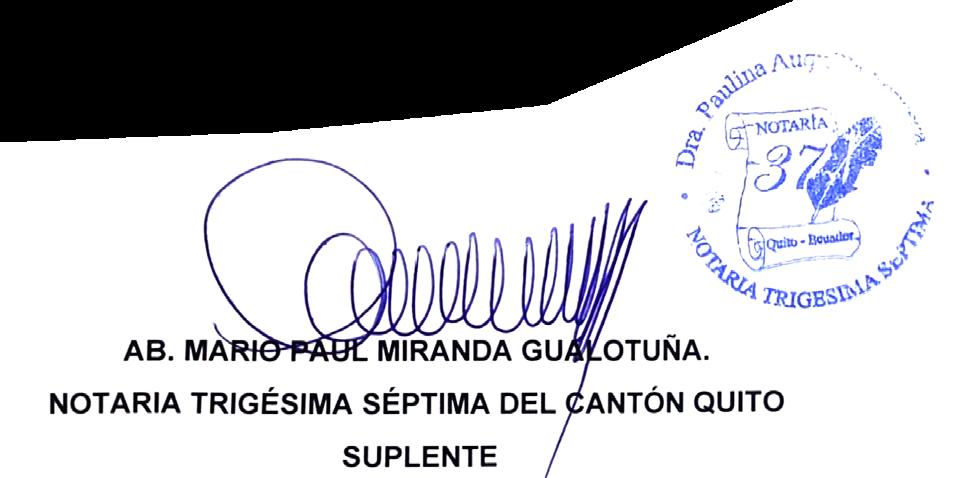 Dra. Paulina
NOTARÍA
37
Quito - Ecuador
NOTARIA TRIGESIMA SEPTIMA
AB. MARIO PAUL MIRANDA GUALOTUÑA.
NOTARIA TRIGÉSIMA SÉPTIMA DEL CANTÓN QUITO
SUPLENTE